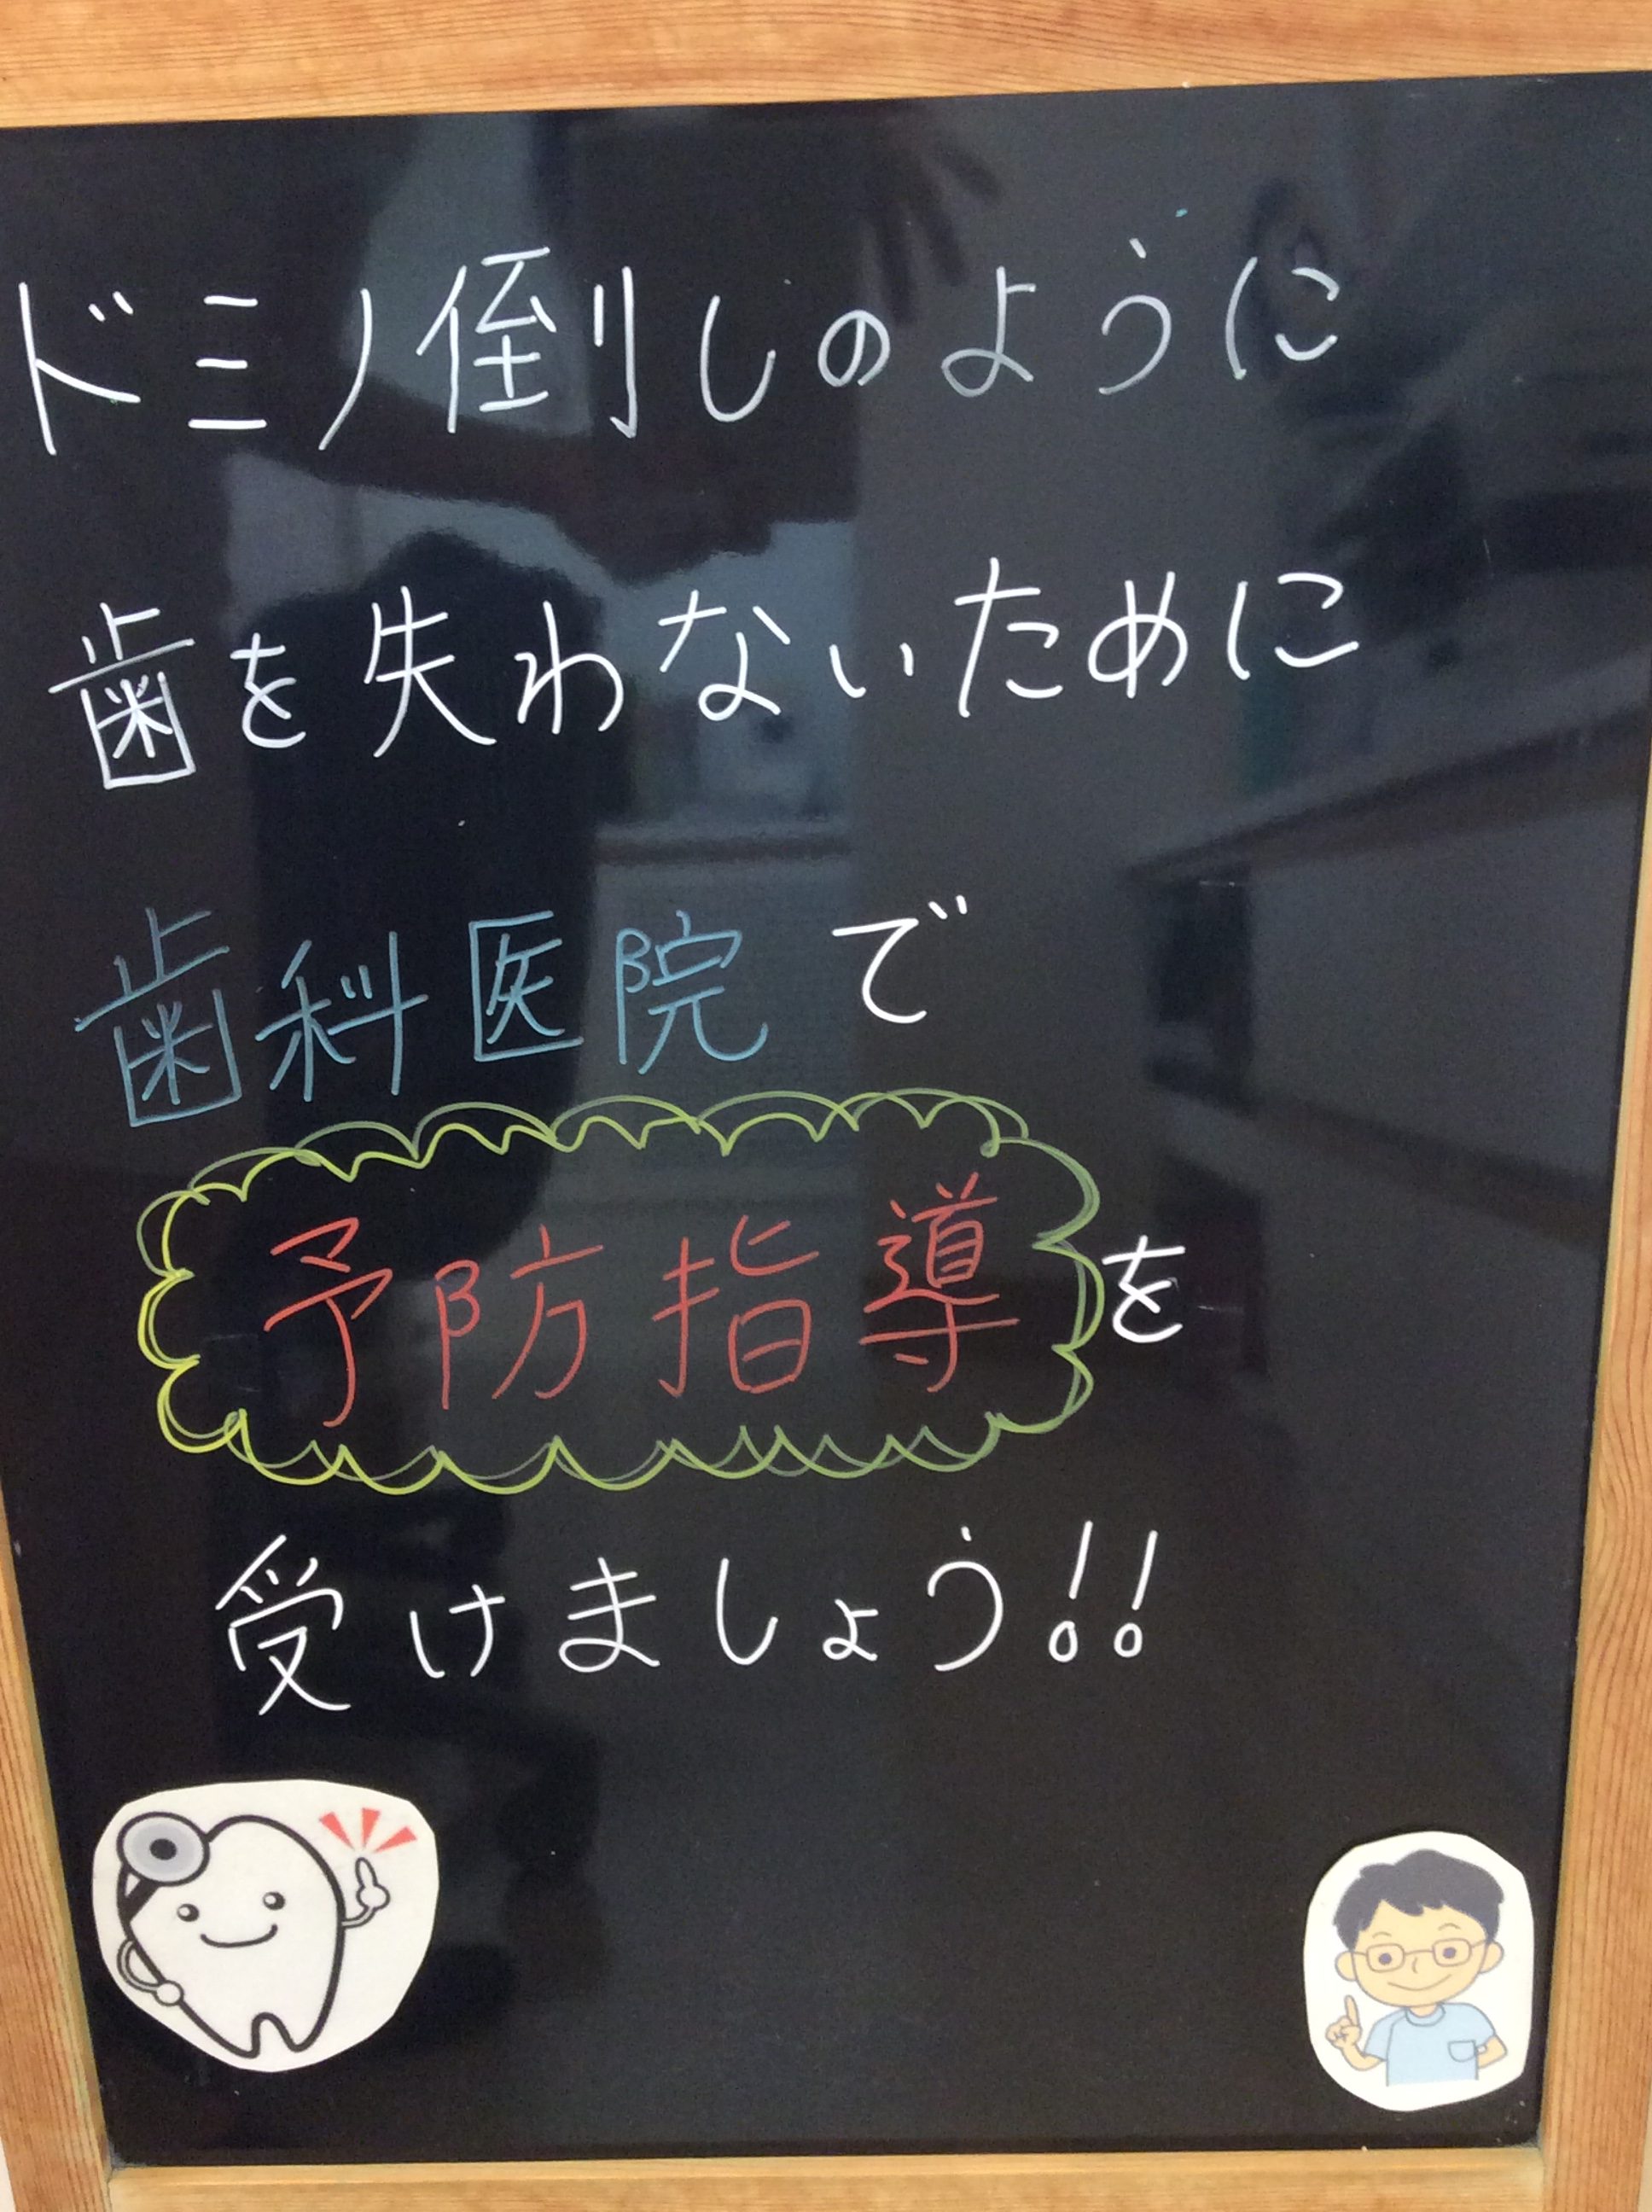 ドミノ倒しのように
歯を失わないために
歯科医院で
予防指導を
受けましょう!!